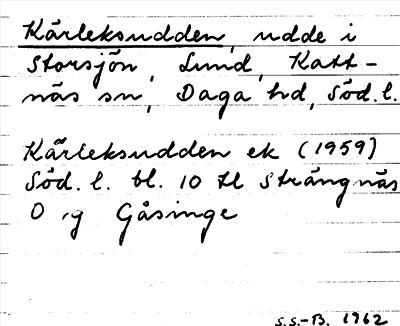 Kärleksudden, udde i
Storsjön, Lund, Katt-
näs sn, Daga hd, Söd. l.
Kärleksudden ek (1959)
Söd. l. bl. 10 tl Strängnäs
O, g Gåsinge
S.S.-B. 1962